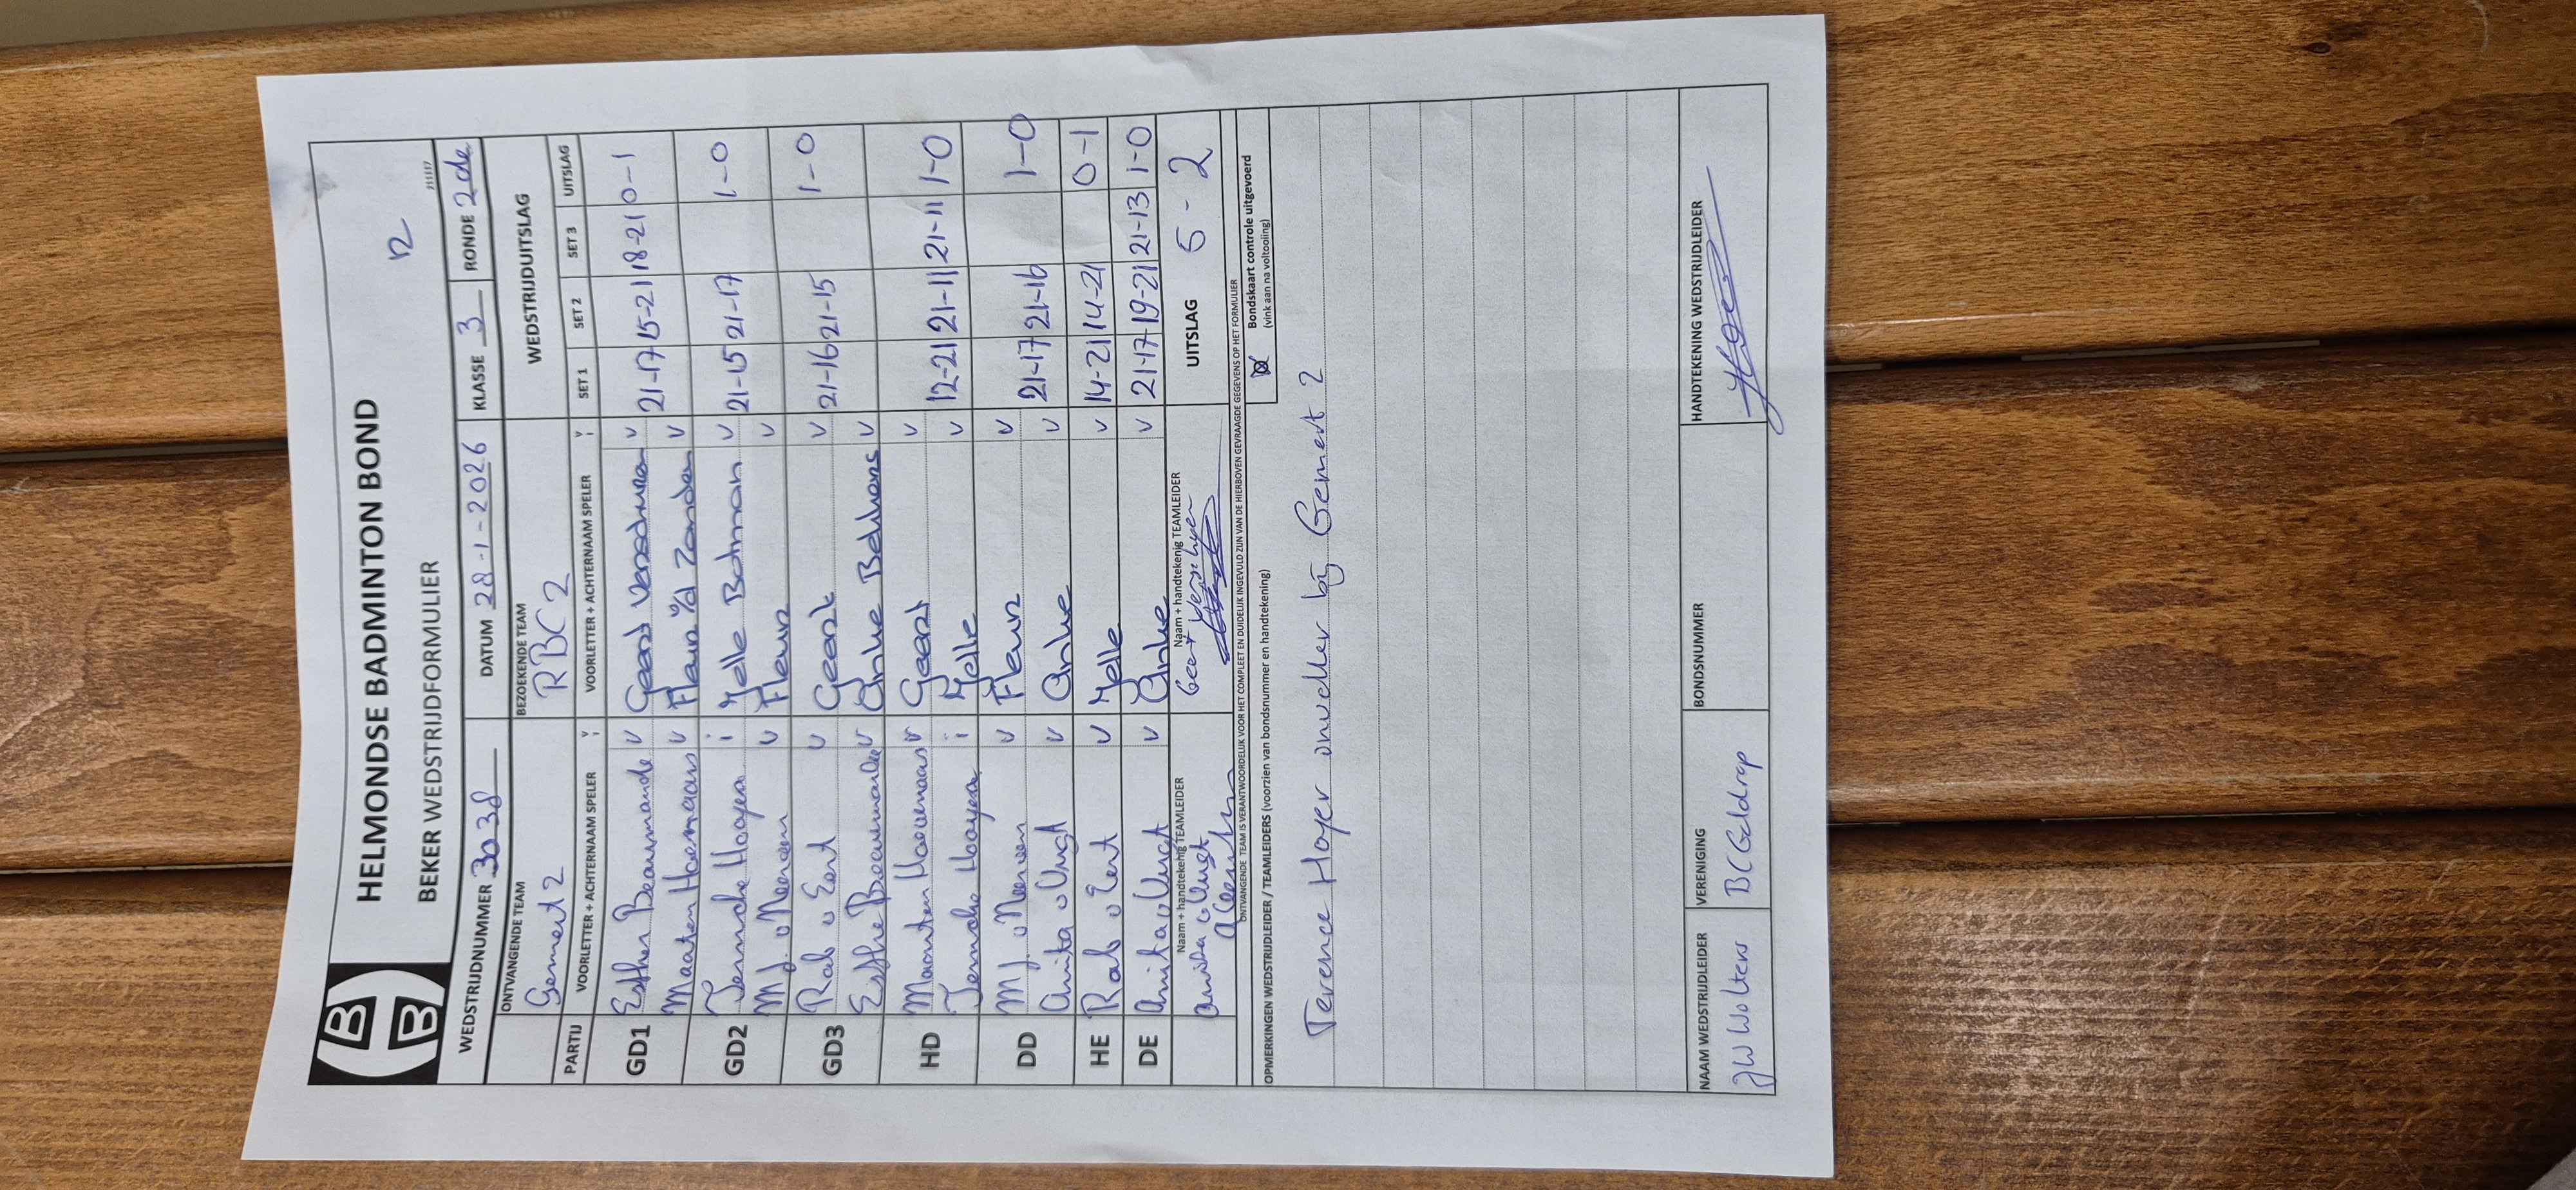 HELMONDSE BADMINTON BOND
BEKER WEDSTRIJDFORMULIER
WEDSTRIJDNUMMER 3038 DATUM 28-1-2026 KLASSE 3 RONDE 2de
ONTVANGENDE TEAM BEZOEKENDE TEAM WEDSTRIJDUITSLAG
Gemert 2 RBC 2
PARTIJ VOORLETTER + ACHTERNAAM SPELER VOORLETTER + ACHTERNAAM SPELER SET 1 SET 2 SET 3 UITSLAG
GD1 Esther v Geert v 21-17 15-21 18-21 0-1
Maarten v Fleur v/d Zanden v
GD2 i Jelle v 21-15 21-17 1-0
MJ. v Fleur v
GD3 Rob v Eert v Geert v 21-16 21-15 1-0
Esther v Anke v
HD Maarten v Geert v 12-21 21-11 21-11 1-0
i Jelle v
DD MJ. v Fleur v 21-17 21-16 1-0
Anita v Vugt v Anke v
HE Rob v Eert v Jelle v 14-21 14-21 0-1
DE Anita v Vugt v Anke v 21-17 19-21 21-13 1-0
Naam + handtekenig TEAMLEIDER Naam + handtekenig TEAMLEIDER UITSLAG 5-2
Anita v Vugt Geert
ONTVANGENDE TEAM IS VERANTWOORDELIJK VOOR HET COMPLEET EN DUIDELIJK INGEVULD ZIJN VAN DE HIERBOVEN GEVRAAGDE GEGEVENS OP HET FORMULIER
OPMERKINGEN WEDSTRIJDLEIDER / TEAMLEIDERS (voorzien van bondsnummer en handtekening) Bondskaart controle uitgevoerd
(vink aan na voltooling)
Terence Hoyer invaller bij Gemert 2
NAAM WEDSTRIJDLEIDER VERENIGING BONDSNUMMER HANDTEKENING WEDSTRIJDLEIDER
JW Wolters BCGeldrop